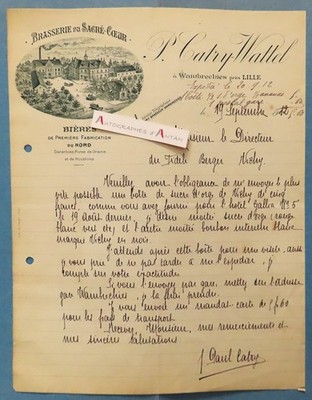 BRASSERIE DU SACRÉ-CŒUR
P. Catry-Wattel
à Wambrechies près LILLE
BIÈRES
DE PREMIÈRE FABRICATION
DU NORD
AUTOGRAPHES D'ANTAN
19 Septembre
Monsieur le Directeur
du Fidèle Berger Vichy
Veuillez avoir l'obligeance de m'envoyer le plus
vite possible une boîte de sucre d'orge Vichy de cinq
francs, comme vous avez fourni pour l'hotel N° 5
le 19 août dernier, moitié sucre d'orge rouge
blanc ou vert et l'autre moitié bonbon blanc
marque Vichy en noir.
J'attends après cette boîte pour un, aussi
je vous prie de ne pas tarder à me l'expédier, je
compte sur votre exactitude.
Si vous l'envoyez par gare, mettez en adresse
gare Wambrechies, je la ferai prendre.
Je vous envoie un mandat carte de
pour les frais de transport.
Recevez, Monsieur, mes remerciements et
mes sincères salutations
J. Paul Catry